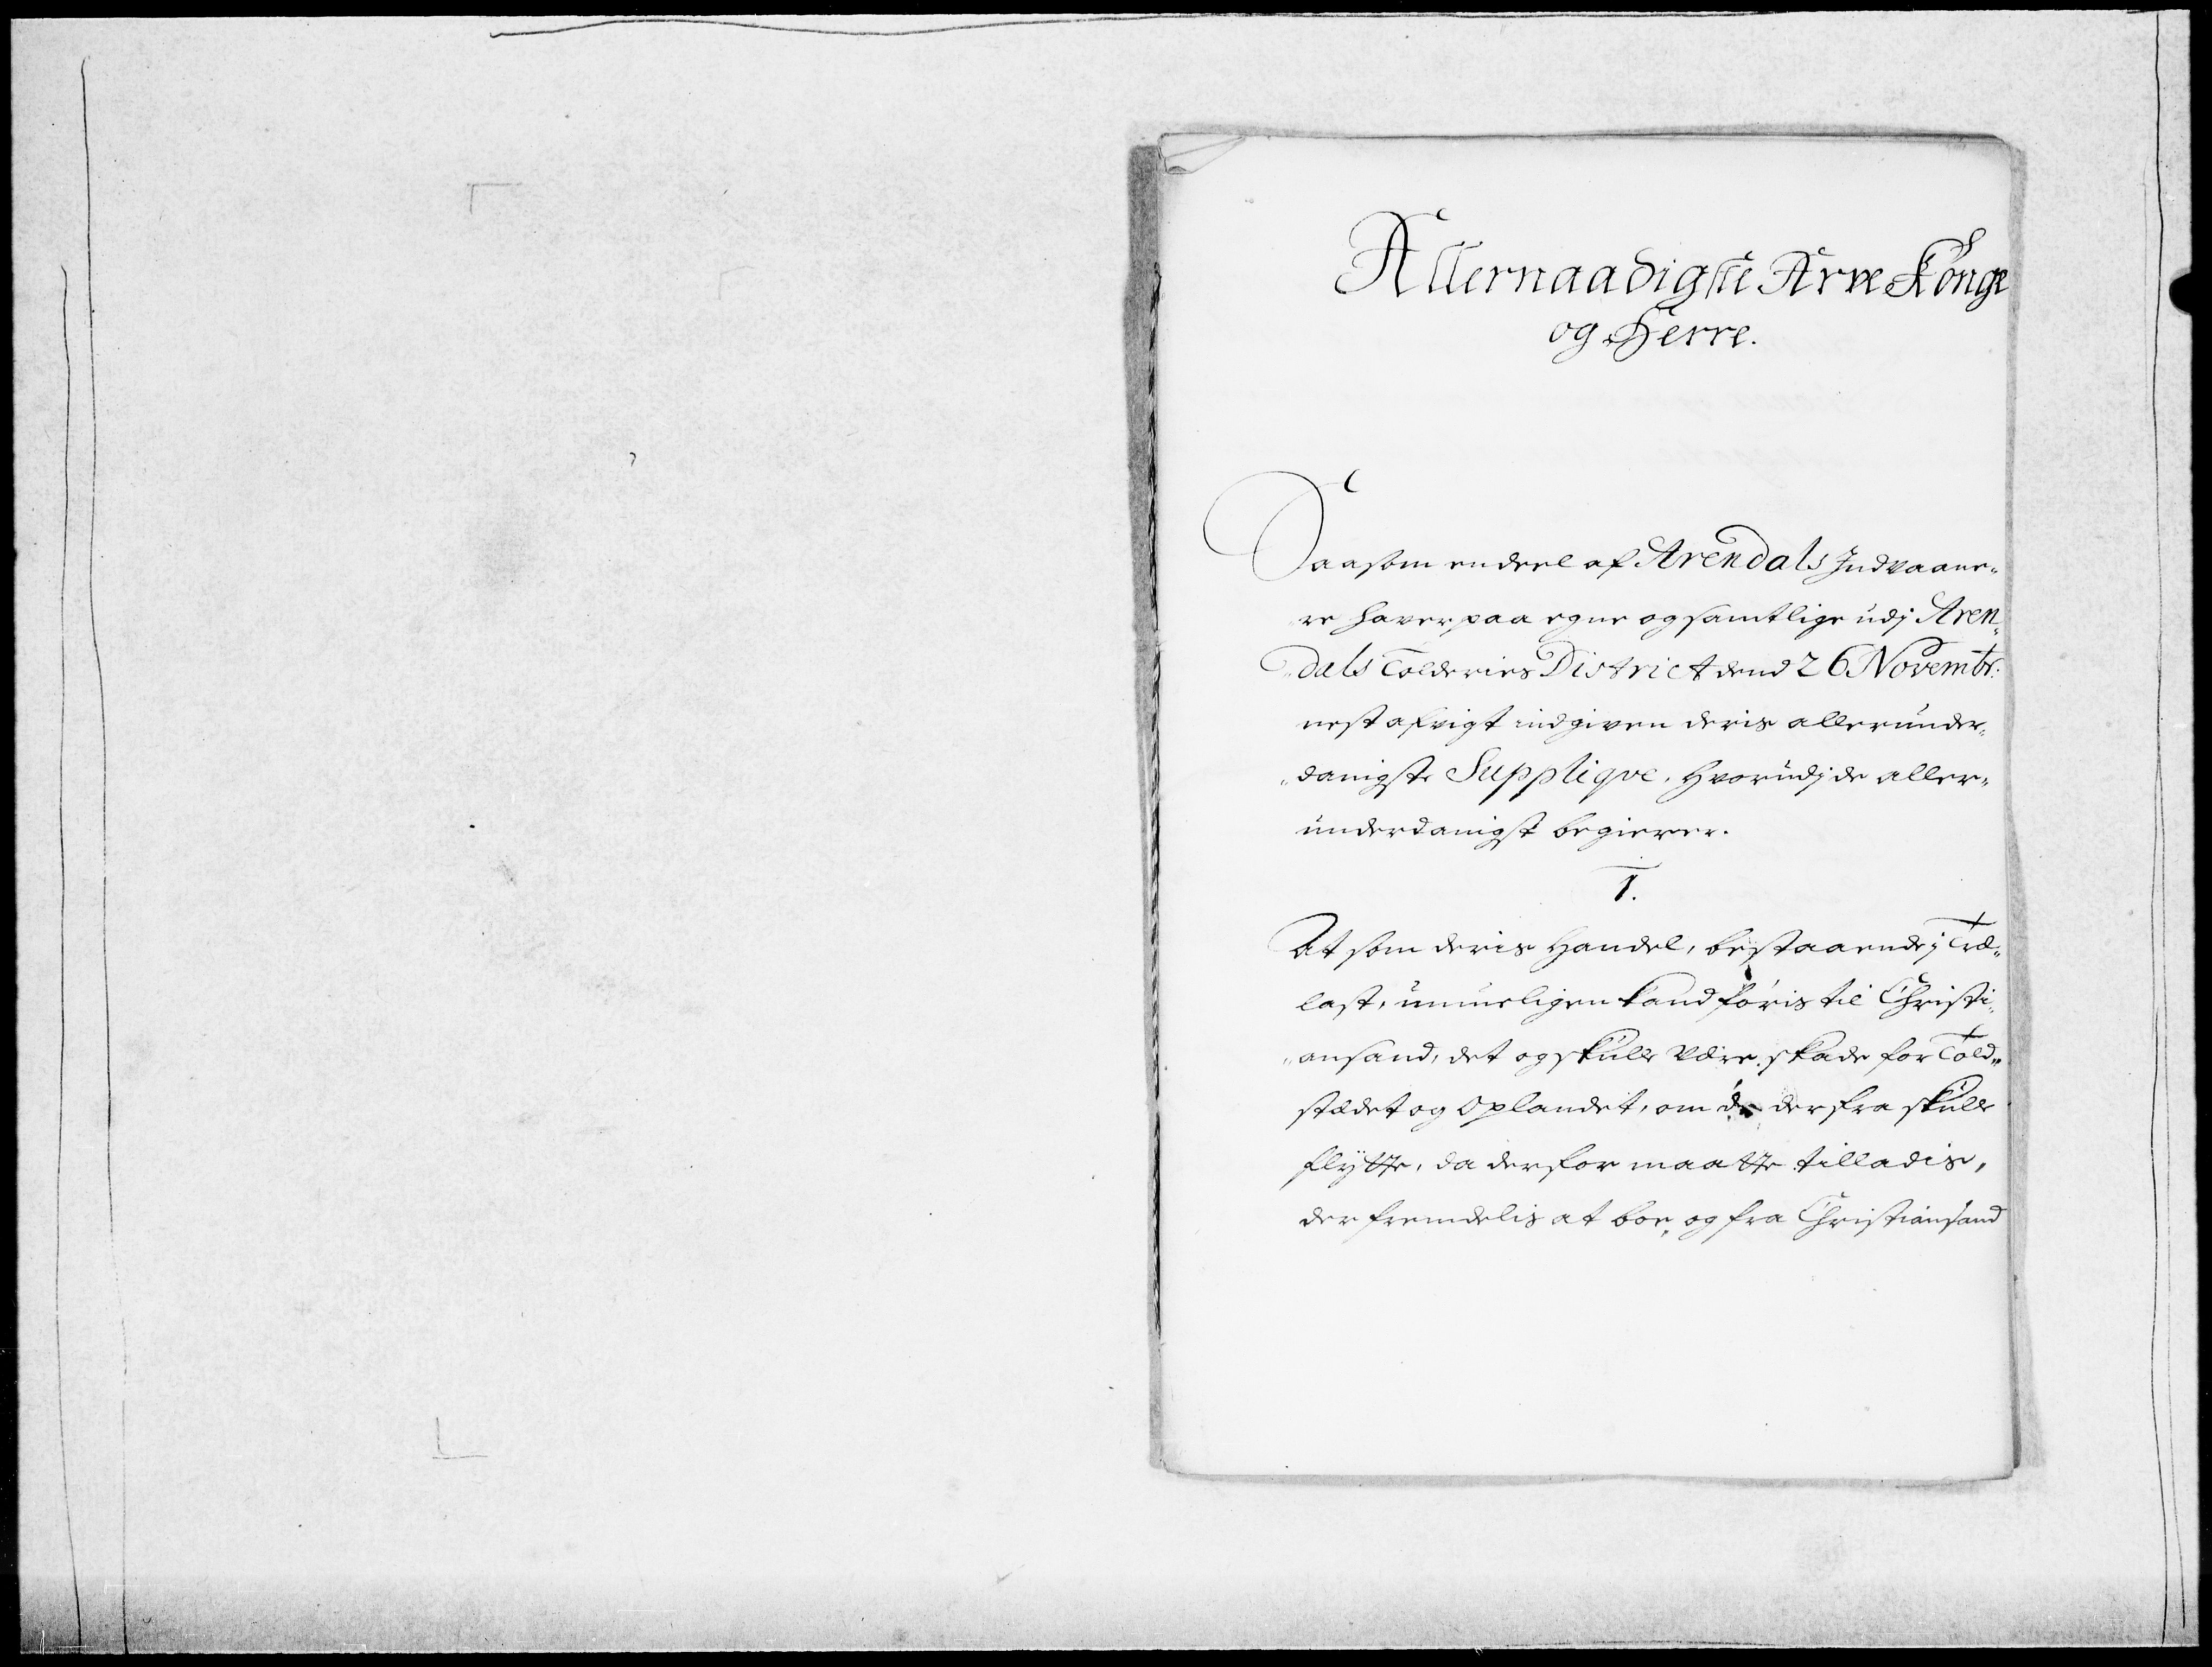 Allernaadigste Arve Konge
og Herre.
Saasom endeel af Arendals Indvaane-
re haver paa egne og samtlige udj Aren-
dals Tolderies District dend 26 Novembr:
nest afvigt indgiven deris allerunder-
danigste Supplique, hvorudj de aller-
underdanigst begierer.
1.
At som deris Handel, bestaaende j Træ-
last, umueligen kand føris til Christi-
ansand, det og skulle være skade for Told-
stædet og Oplandet, om de der fra skulle
flÿtte, da derfor maatte tilladis,
der fremdelis at boe, og fra Christiansand